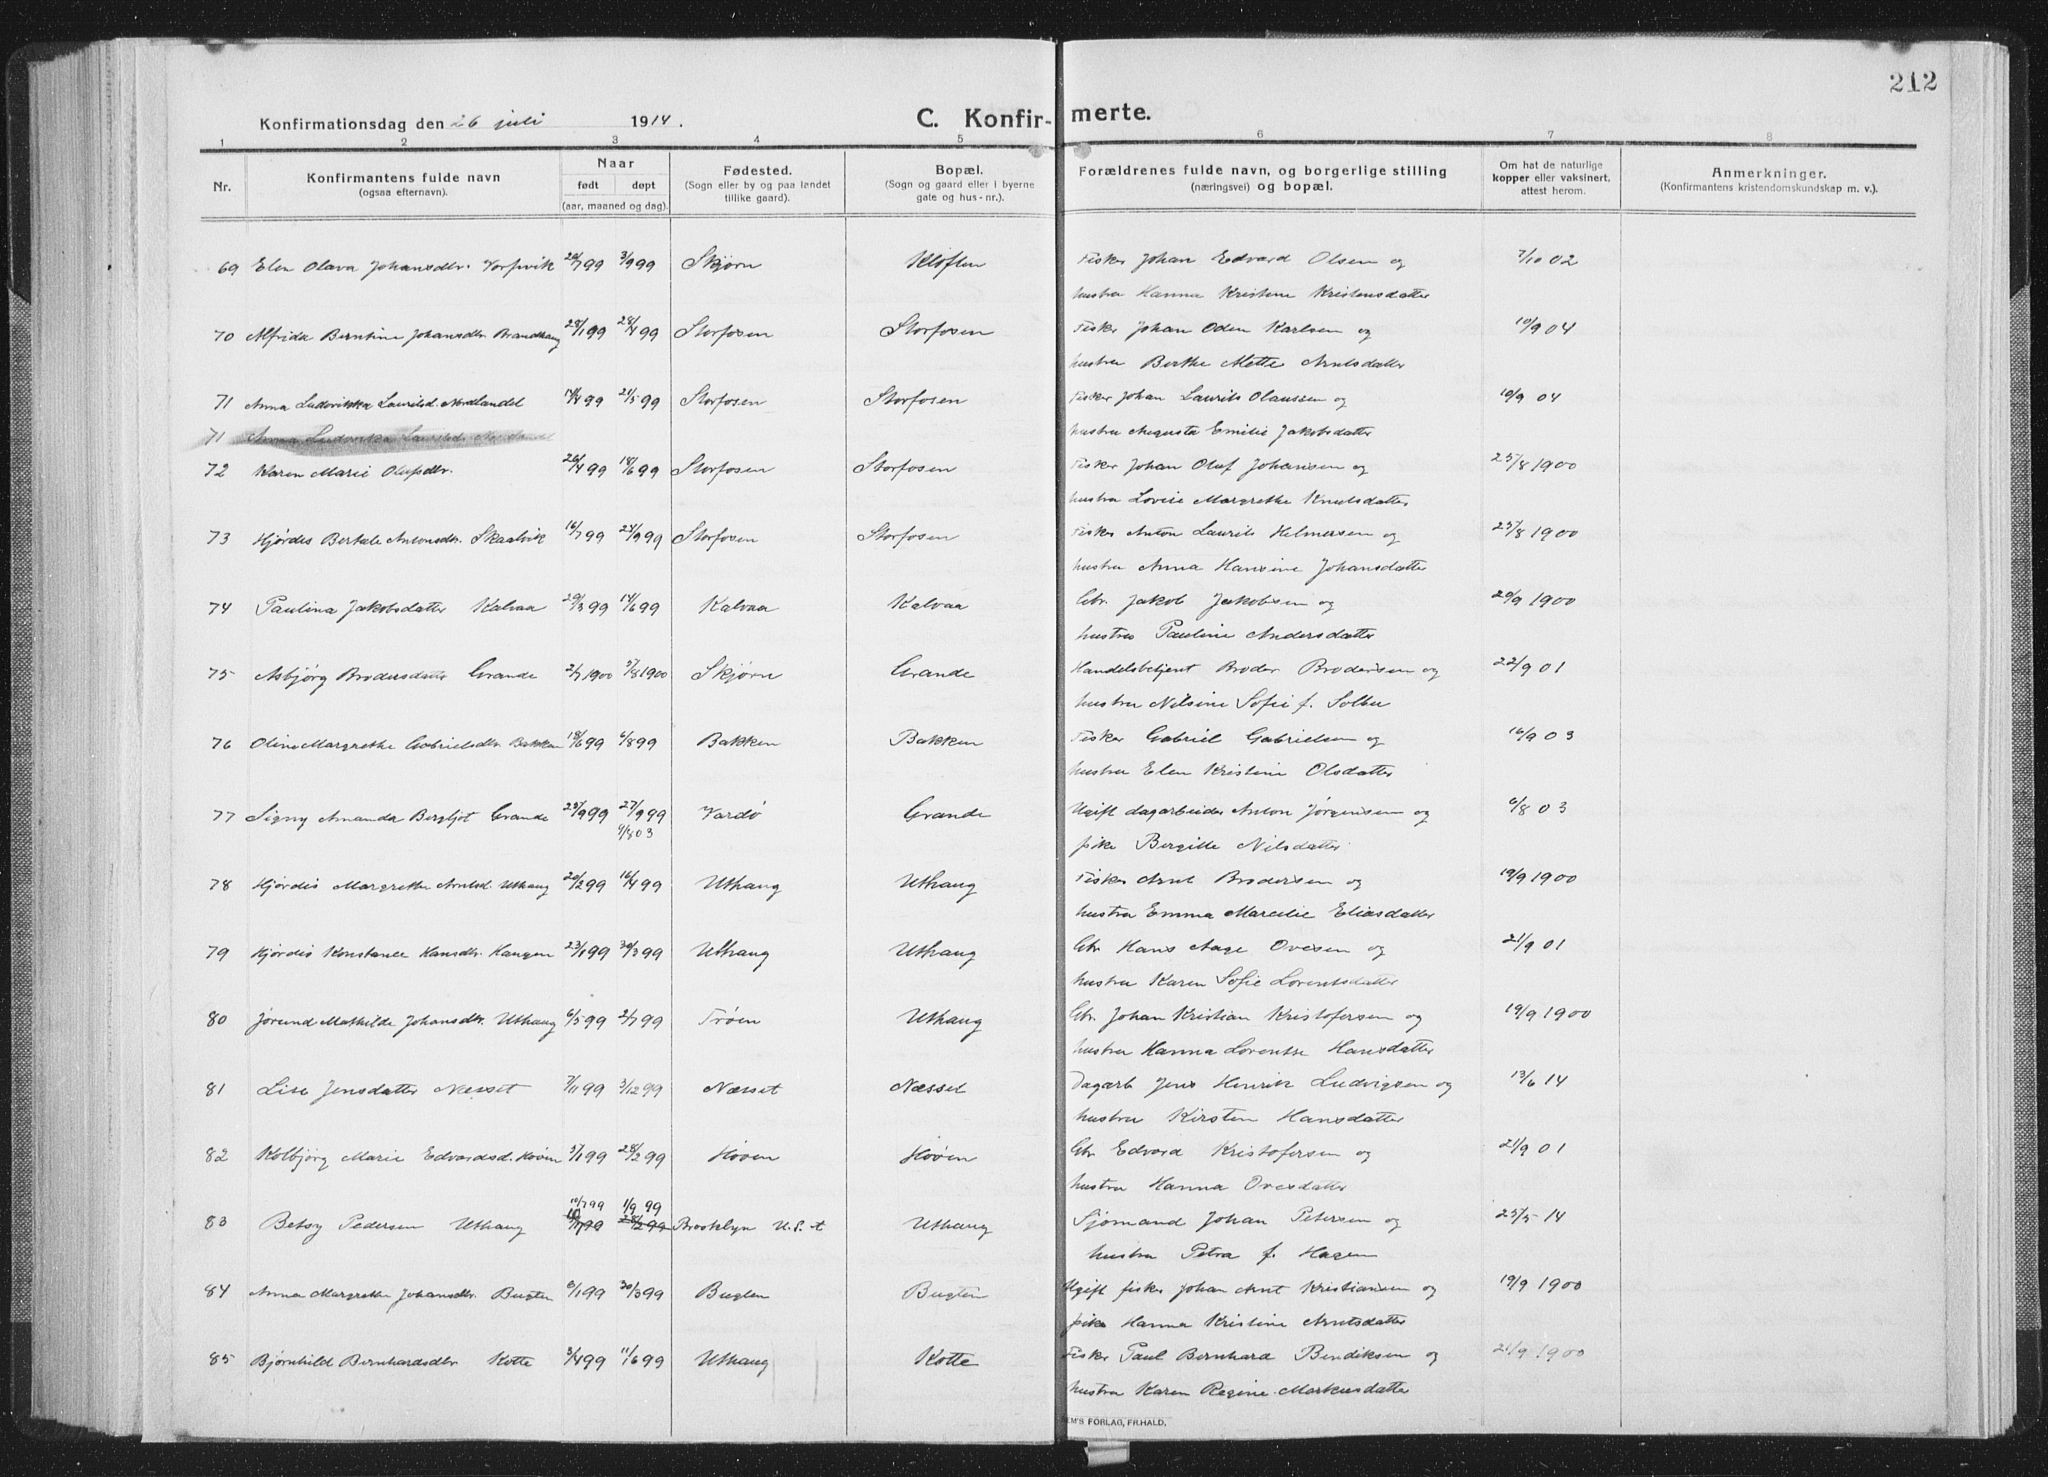 212
Konfirmationsdag den 26 juli 1914. C. Konfir- merte.
1 2 3 4 5 6 7 8
Nr. Konfirmantens fulde navn (ogsaa efternavn). Naar født døpt (aar, maaned og dag). Fødested. (Sogn eller by og paa landet tillike gaard). Bopæl. (Sogn og gaard eller i byerne gate og hus-nr.). Forældrenes fulde navn, og borgerlige stilling (næringsvei) og bopæl. Om hat de naturlige kopper eller vaksinert, attest herom. Anmerkninger. (Konfirmantens kristendomskundskap m. v.).
69 Elen Olava Johansdtr. Vorpvik 20/7 99 3/9 99 Skjørn Kløften Fisker Johan Edvard Olsen og 7/10 02
hustru Hanna Kristine Kristensdatter
70 Alfrida Berntine Johansdtr. Brandhaug 28/1 99 28/4 99 Storfosen Storfosen Fisker Johan Oden Karlsen og 10/9 04
hustru Berthe Mette Arntsdatter
71 Anna Ludovikka Lauritsd. Nordlandet 14/4 99 21/5 99 Storfosen Storfosen Fisker Johan Laurits Olaussen og 10/9 04
71 Anna Ludovika Lauritsd. Nordlandet hustru Augusta Emilie Jakobsdatter
72 Karen Marie Olufsdtr. 26/4 99 18/6 99 Storfosen Storfosen Fisker Johan Oluf Johansen og 25/8 1900
hustru Lovise Margrethe Knutsdatter
73 Hjørdis Bertale Antonsdtr. Skaalvik 16/7 99 24/9 99 Storfosen Storfosen Fisker Anton Laurits Helmersen og 25/8 1900
hustru Anna Hansine Johansdatter
74 Paulina Jakobsdatter Kalvaa 29/3 99 14/6 99 Kalvaa Kalvaa Gbr. Jakob Jakobsen og 20/9 1900
hustru Pauline Andersdatter
75 Asbjørg Brodersdatter Grande 2/7 1900 5/8 1900 Skjørn Grande Handelsbetjent Broder Brodersen og 22/9 01
hustru Nilsine Sofie f. Solbu
76 Oline Margrethe Gabrielsdtr. Bakken 18/6 99 6/8 99 Bakken Bakken Fisker Gabriel Gabrielsen og 16/9 03
hustru Elen Kristine Olsdatter
77 Signy Amanda Bergljot Grande 23/9 99 27/9 99 Vardø Grande Ugift dagarbeider Anton Jørgensen og 6/8 03
9/8 03 pike Bergitte Nilsdatter
78 Hjørdis Margrethe Arntsd. Uthaug 20/2 99 16/4 99 Uthaug Uthaug Fisker Arnt Brodersen og 19/9 1900
hustru Emma Marcelie Eliasdatter
79 Hjørdis Konstance Hansdtr. Haugen 23/1 99 30/3 99 Uthaug Uthaug Gbr. Hans Aage Ovesen og 21/9 01
hustru Karen Sofie Lorentsdatter
80 Jørund Mathilde Johansdtr. Uthaug 6/5 99 2/7 99 Trøen Uthaug Gbr. Johan Kristian Kristofersen og 19/9 1900
hustru Hanna Lorentse Hansdatter
81 Lise Jensdatter Næsset 7/11 99 3/12 99 Næsset Næsset Dagarb Jens Henrik Ludvigsen og 13/6 14
hustru Kirsten Hansdatter
82 Kolbjørg Marie Edvardsd. Høven 5/1 99 28/2 99 Høven Høven Gbr Edvard Kristofersen og 21/9 01
hustru Hanna Ovesdatter
10/7 99 1/9 99
83 Betsy Pedersen Uthaug Brooklyn U.S. t Uthaug Sjømand Johan Petersen og 25/5 14
hustru Petra f. Hagen
84 Anna Margrethe Johansdtr. Bugten 8/1 99 30/3 99 Bugten Bugten Ugift fisker Johan Arnt Kristiansen og 19/9 1900
pike Hanna Kristine Arntsdatter
85 Bjørnhild Bernhardsdtr Kotte 3/4 99 11/6 99 Uthaug Kotte Fisker Paul Bernhard Bendiksen og 21/9 1900
hustru Karen Regine Markusdatter
EM'S FORLAG, FR.HALD.